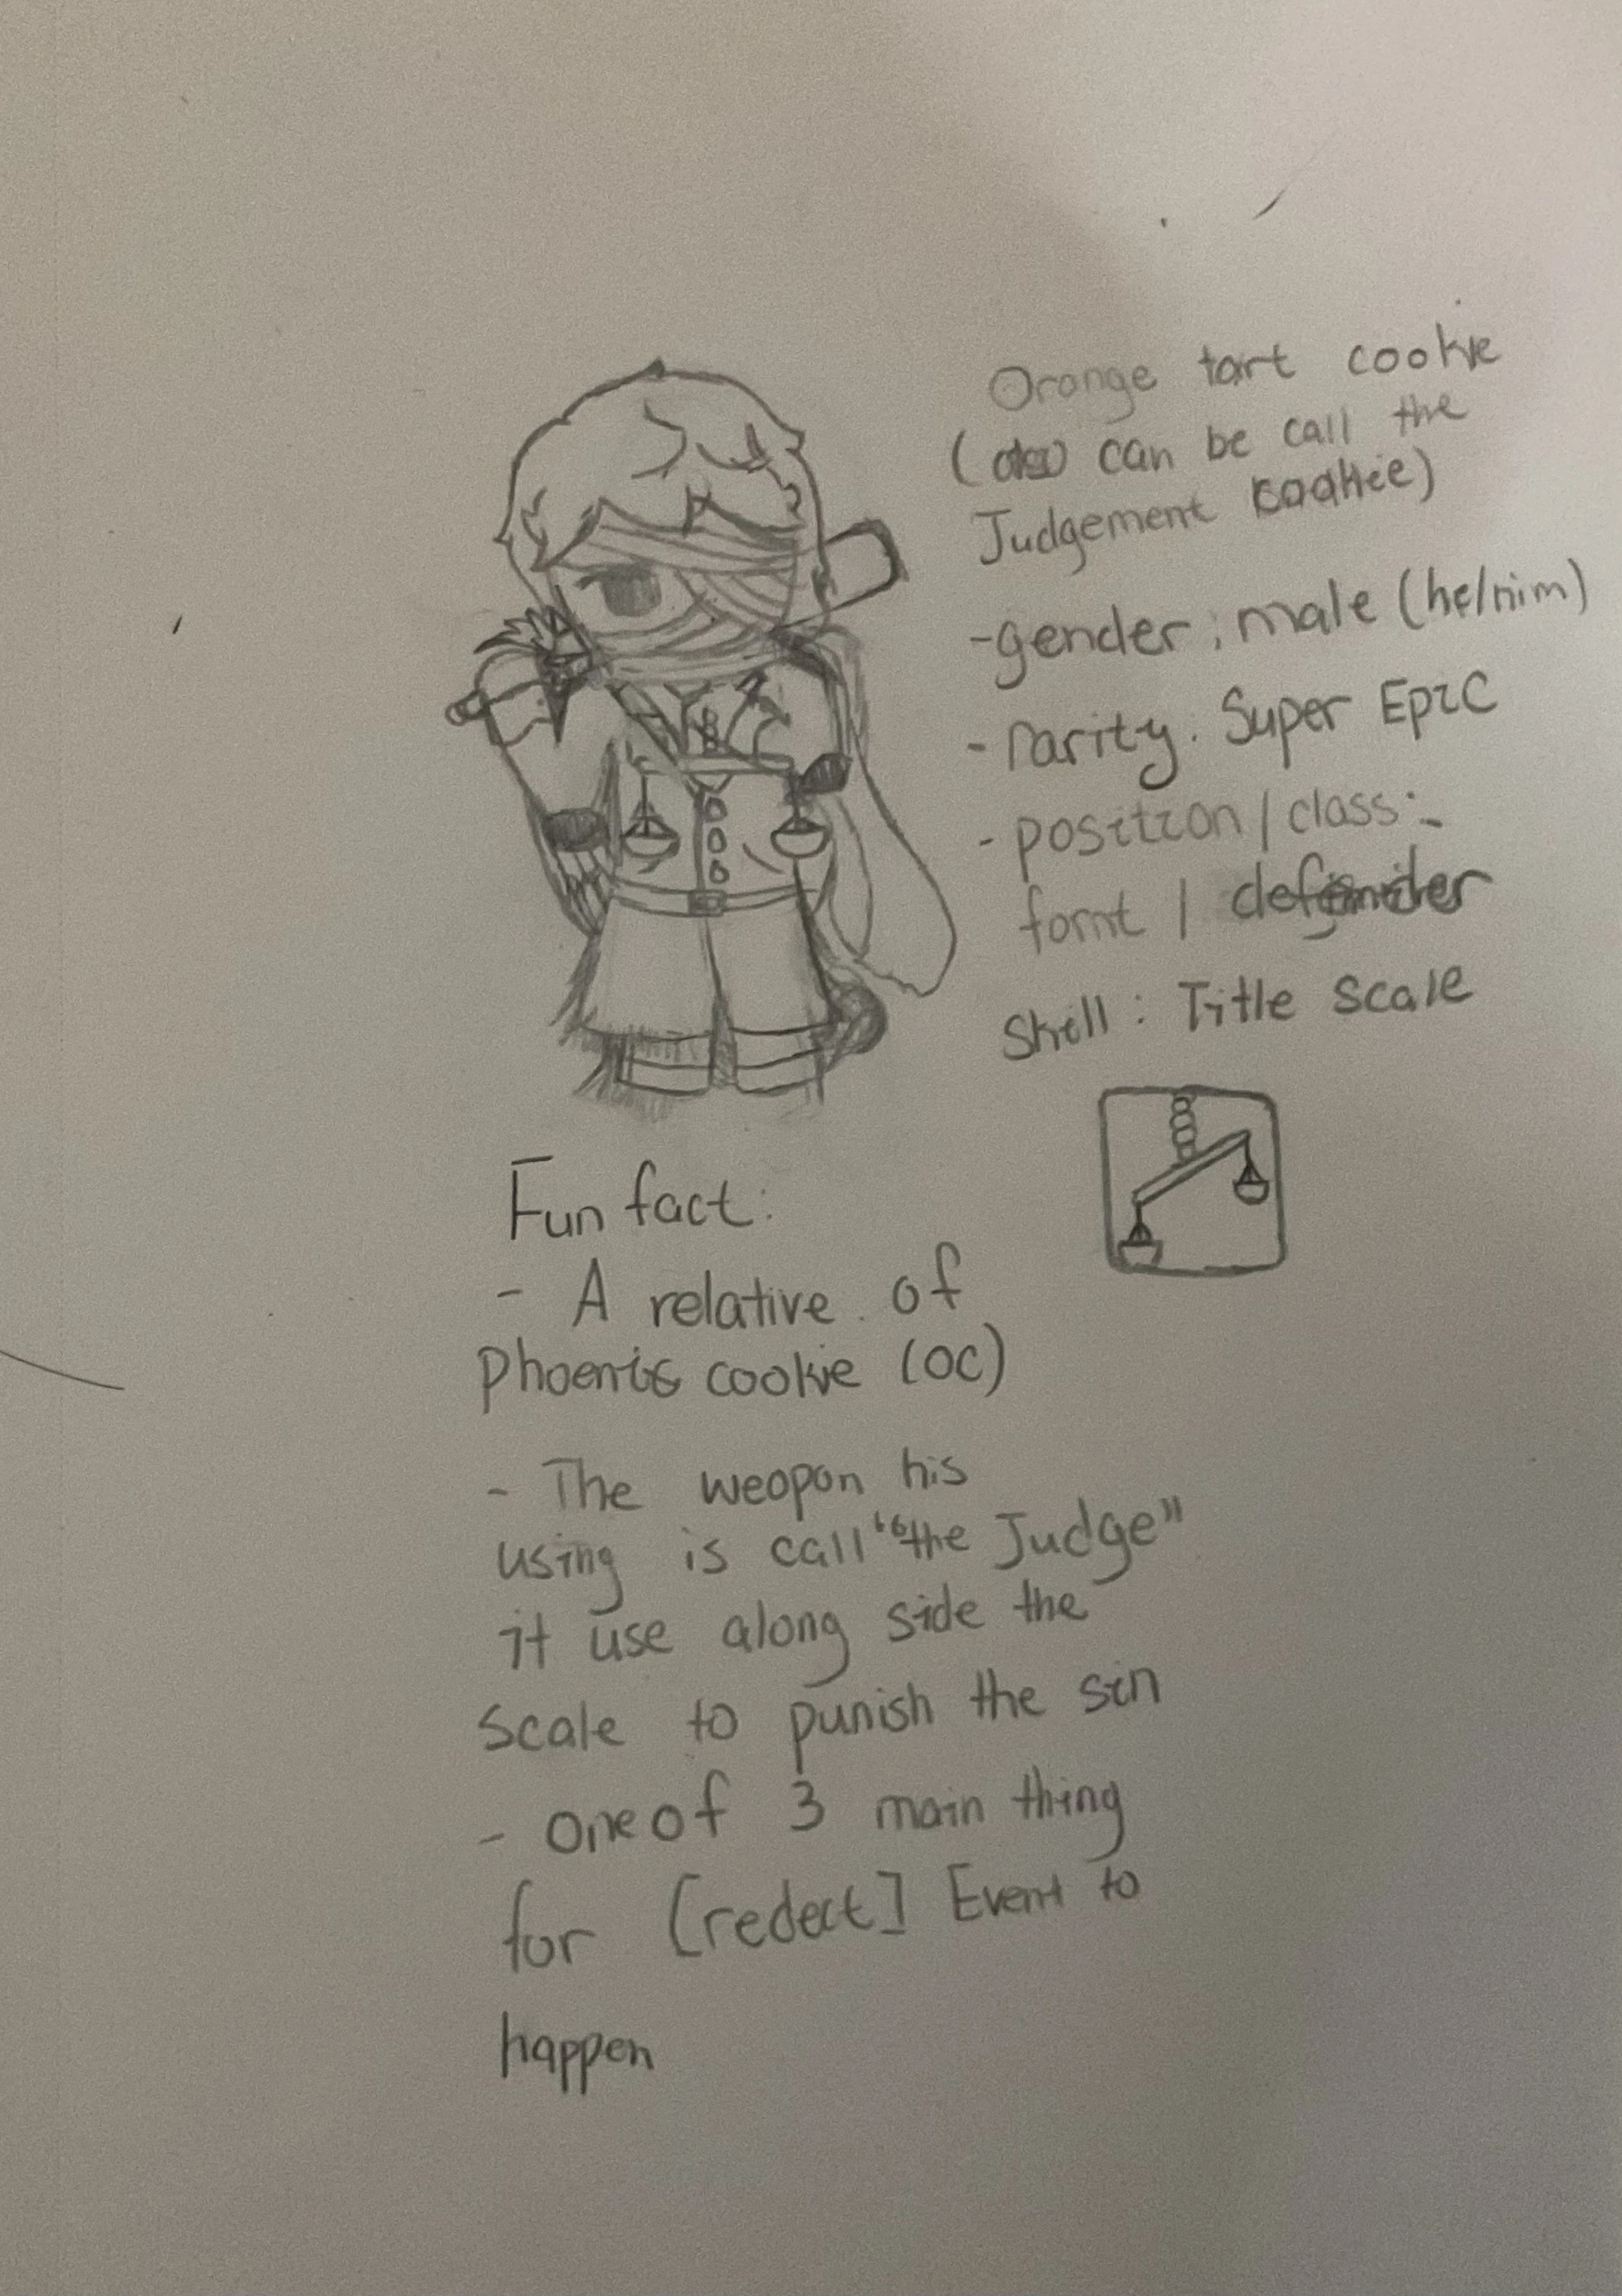 Orange tart cookie
(also can be call the
Judgement cookie)
-gender: male (he/him)
-rarity: Super Epic
-position/class:
fornt / defender
Skill: Title scale
Fun fact:
- A relative of
Phoenix cookie (OC)
- The weopon his
using is call "the Judge"
it use along side the
scale to punish the sin
- one of 3 main thing
for [redect] Event to
happen